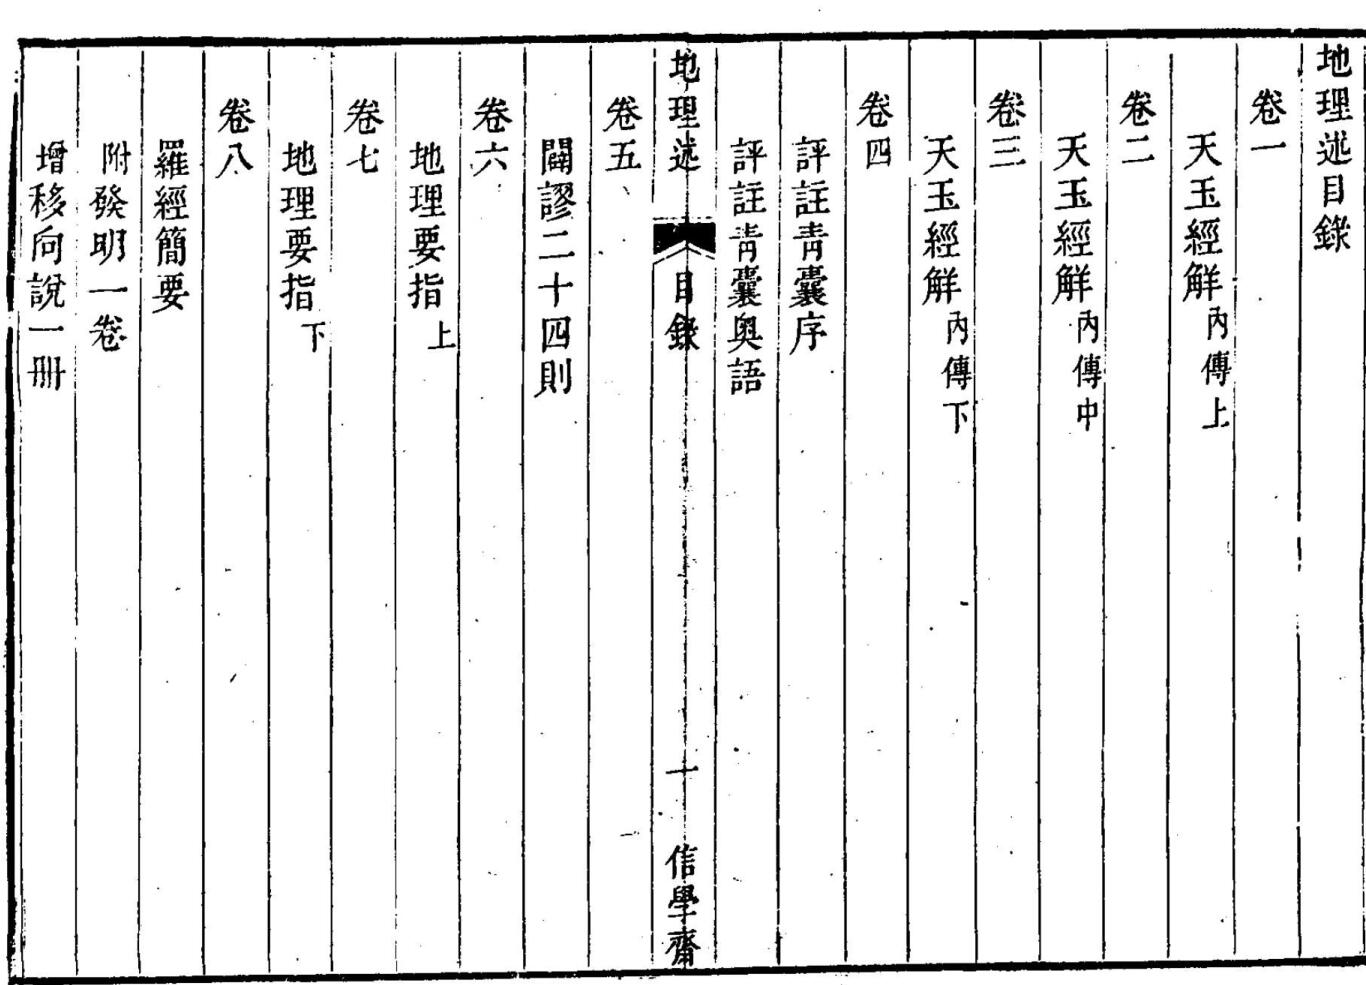 地理述目錄
卷一
天玉經解內傳上
卷二
天玉經解內傳中
卷三
天玉經解內傳下
卷四
評註青囊序
評註青囊奧語
地理述 目錄 一 信學齋
卷五
闢謬二十四則
卷六
地理要指上
卷七
地理要指下
卷八
羅經簡要
附發明一卷
增移向說一冊